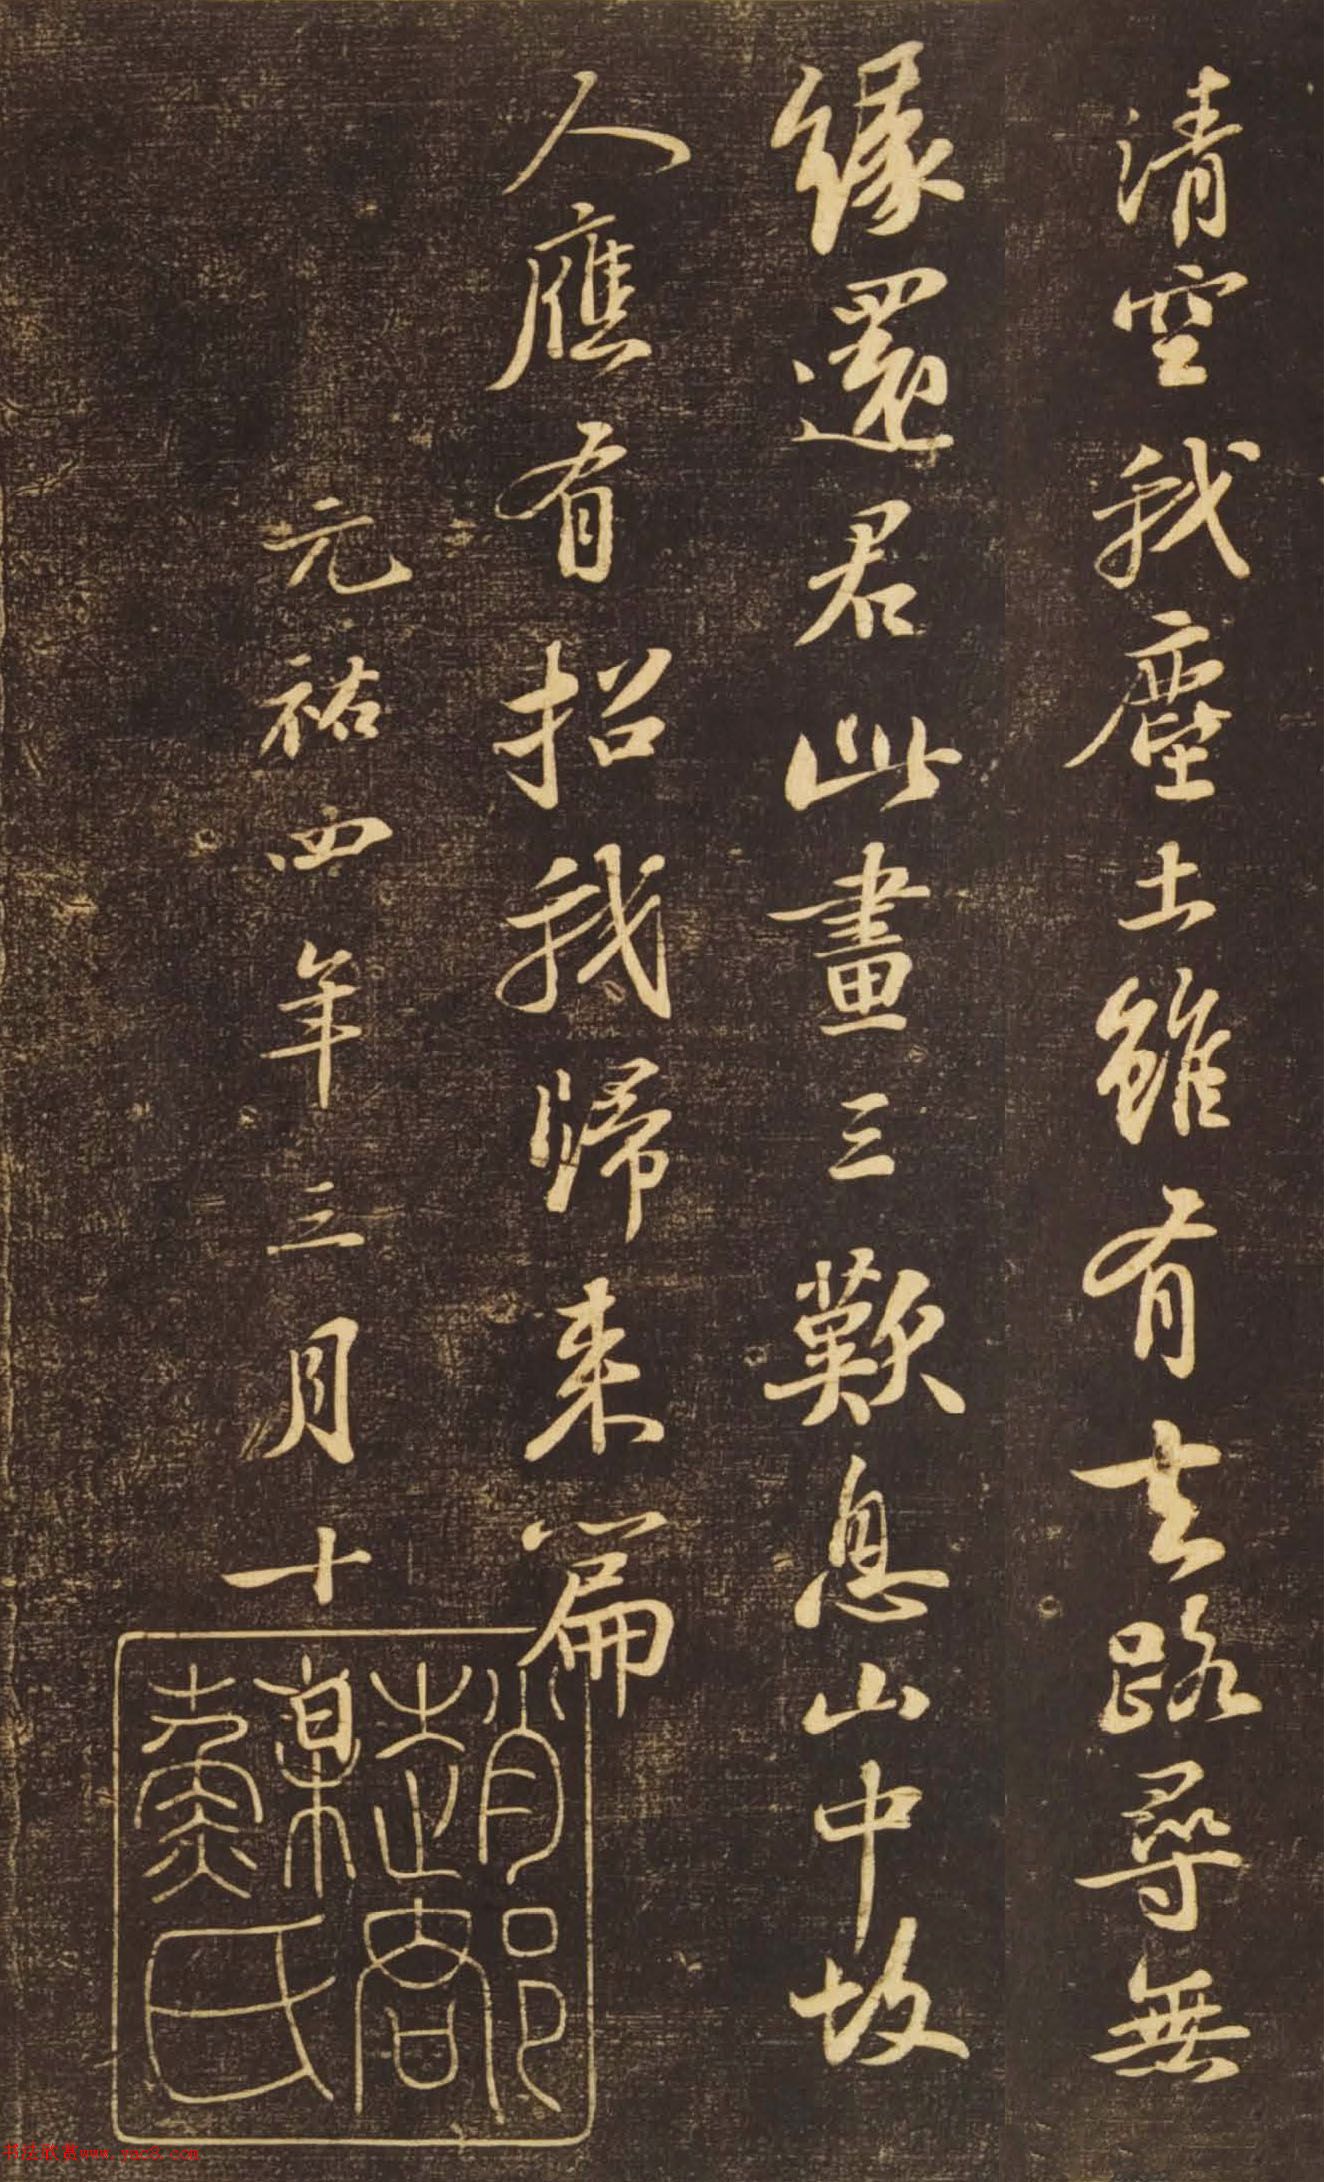 清空我塵土雖有去路尋無
緣還君此畫三歎息山中故
人應有招我歸來篇
元祐四年三月十日
趙郡蘇氏
书法欣赏www.yac8.com